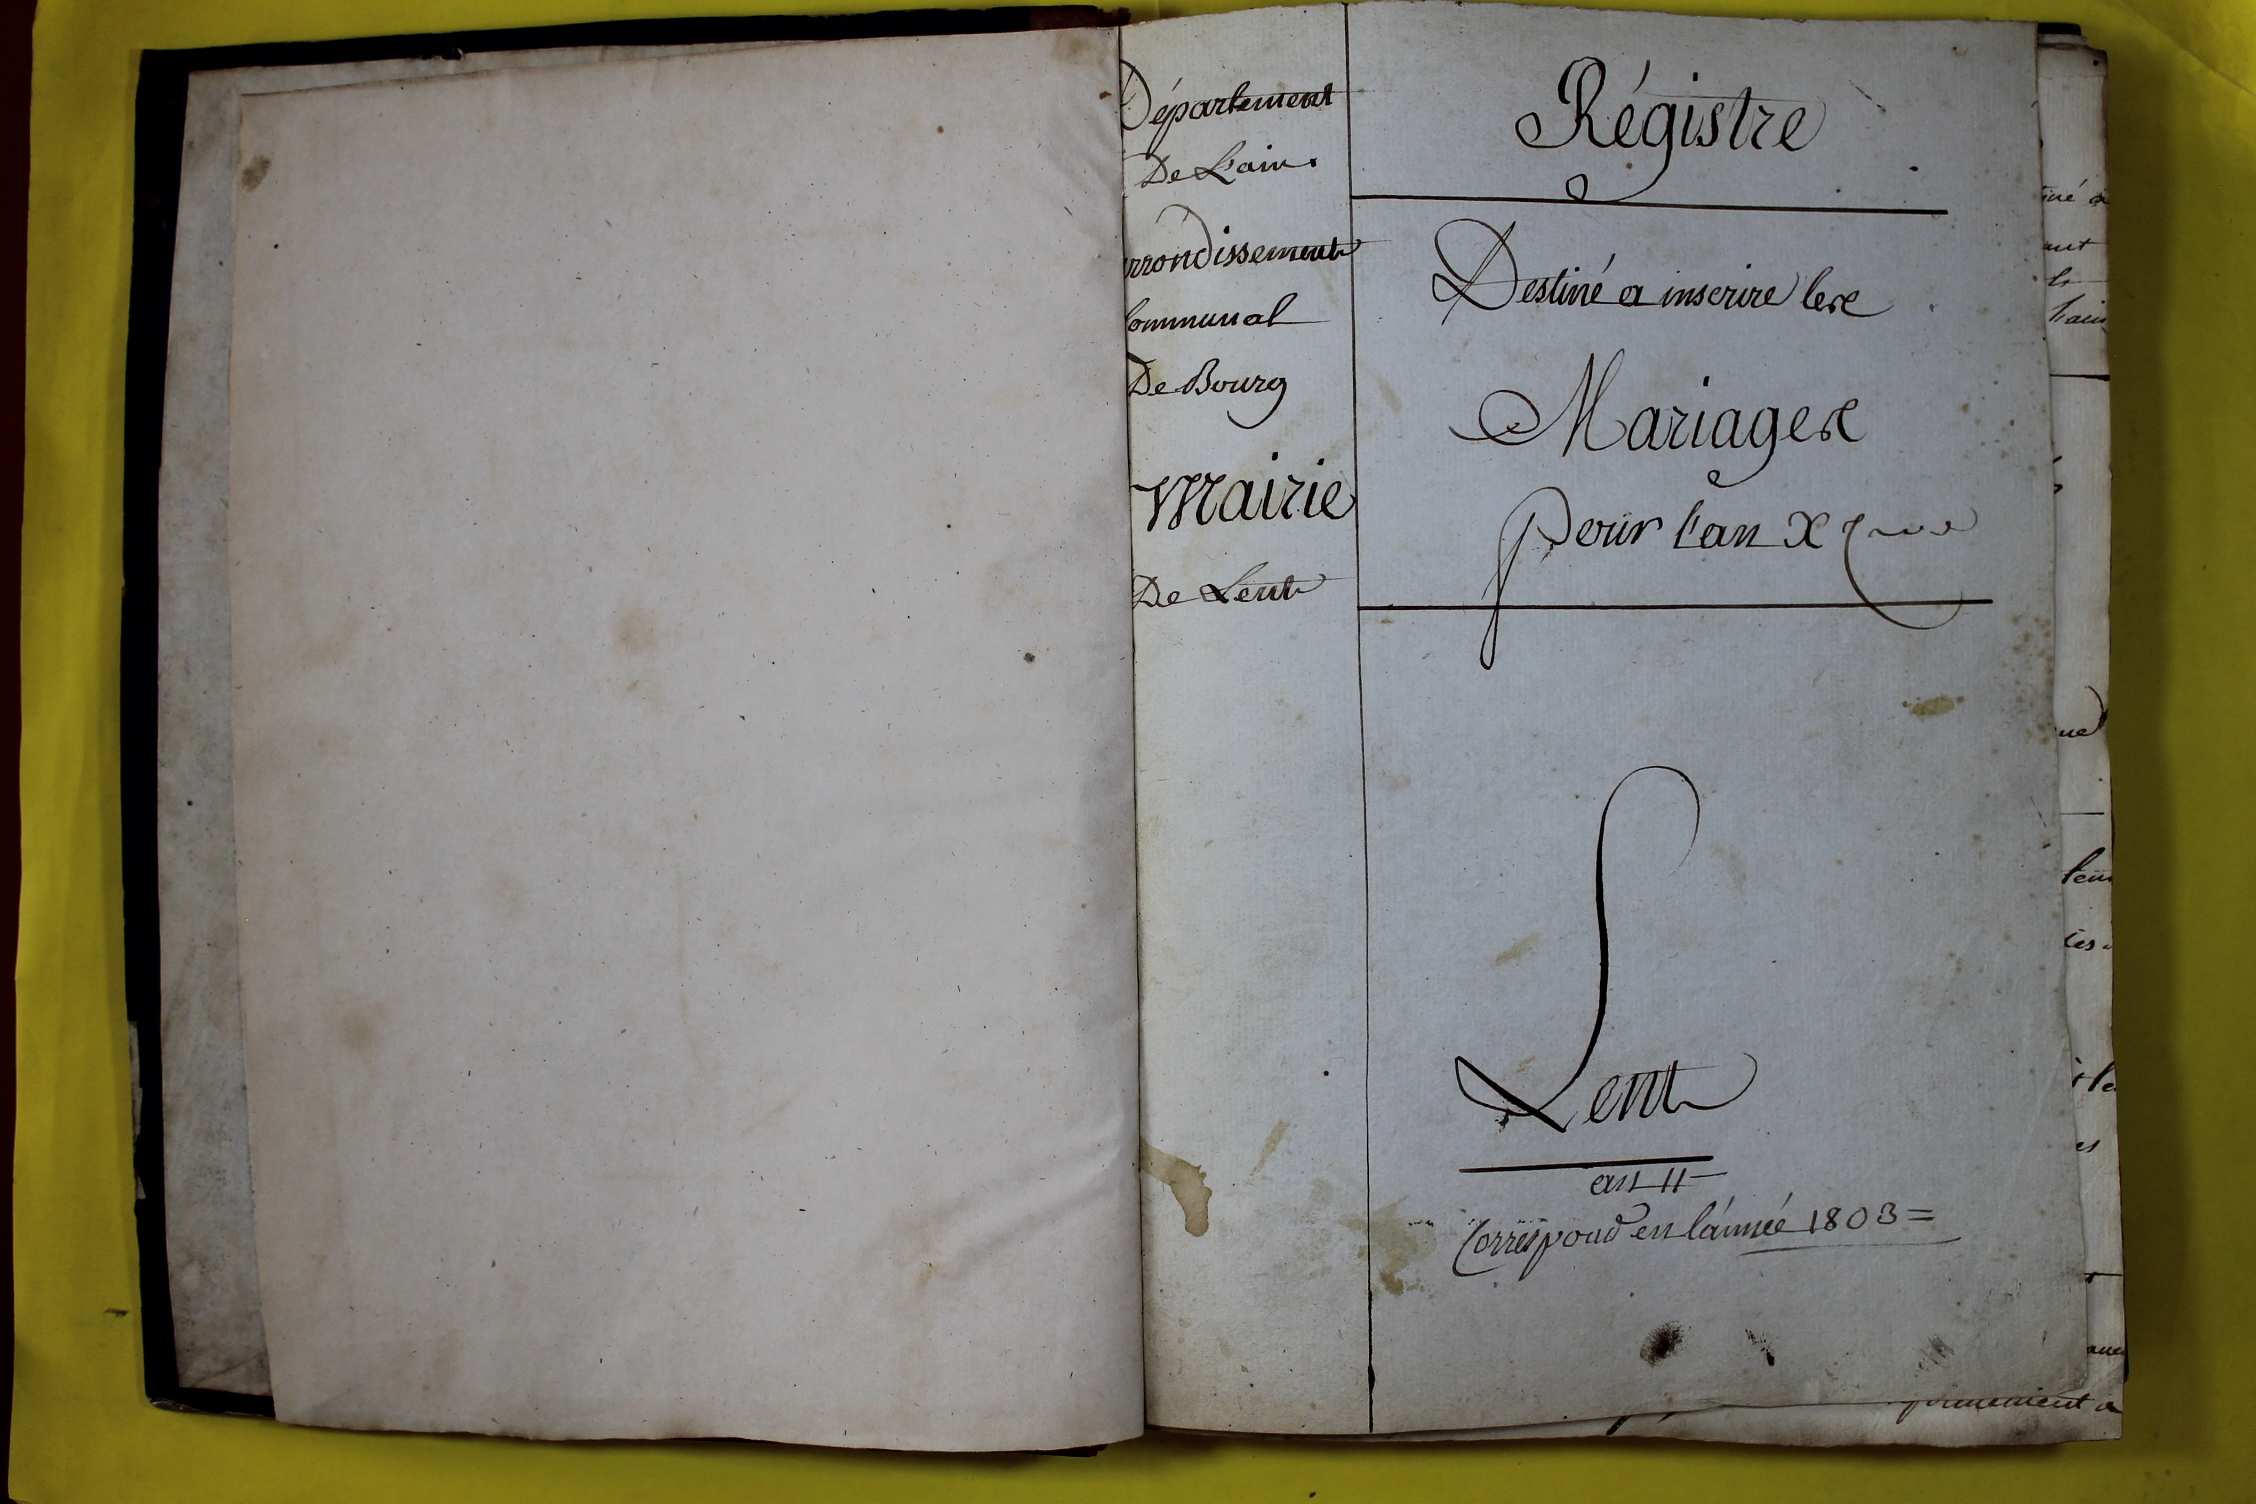 Département
De L'ain.
rrondissement
Communal
De Bourg
Mairie
De Lent
Régistre
Destiné a inscrire les
Mariages
pour l'an X
Lent
an 11
Correspond en l'année 1803 =